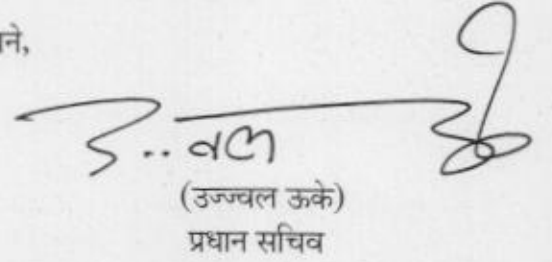 ने,
(उज्ज्वल ऊके)
प्रधान सचिव